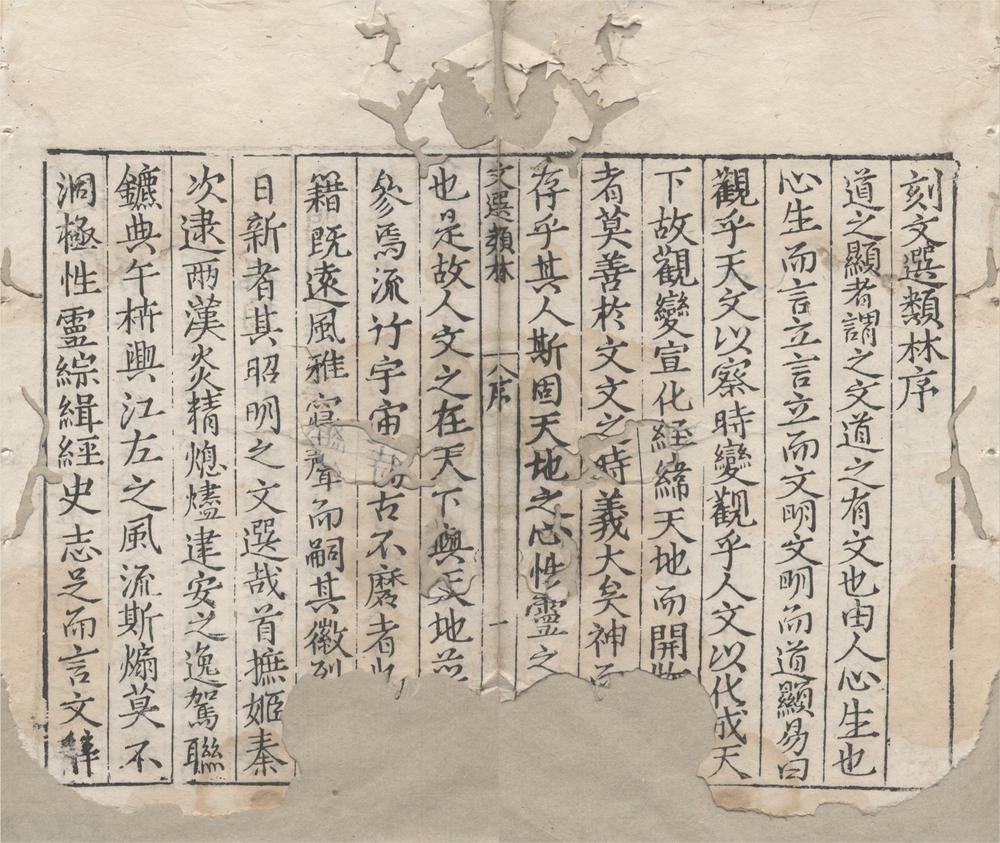 刻文選類林序
道之顯者謂之文道之有文也由人心生也
心生而言立言立而文明文明而道顯易曰
觀乎天文以察時變觀乎人文以化成天
下故觀變宣化経緯天地而開
者莫善於文文之時義大矣神
存乎其人斯固天地之心性靈之
文選類林 序 一
也是故人文之在天下與天地並
參焉流行宇宙古不磨者
籍既遠風雅寢聲而嗣其徽
日新者其昭明之文選哉首摭姬秦
次逮兩漢炎精熄燼建安之逸駕聯
鑣典午枿興江左之風流斯煽莫不
洞極性靈綜緝經史志足而言文